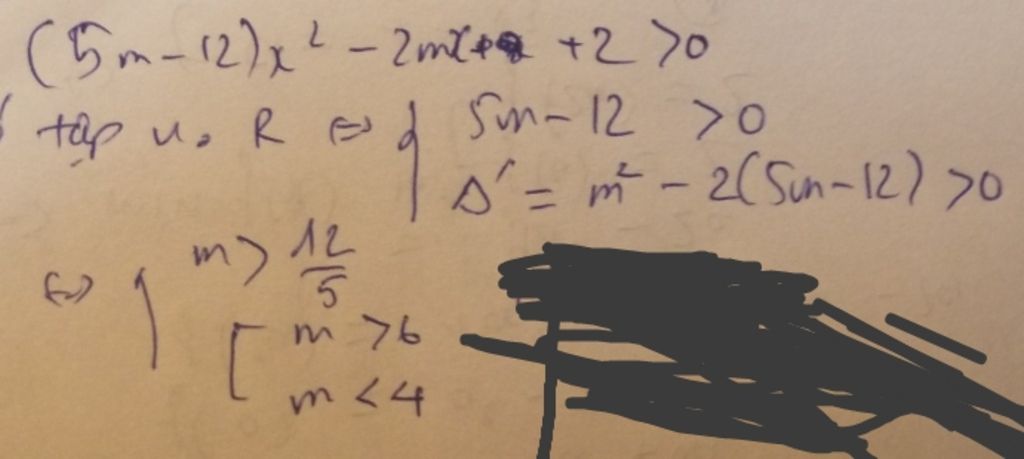 (5m-12)x² - 2mx + 2 >0
tập n. R ⇔ { 5m-12 >0
Δ' = m² - 2(5m-12) >0
⇔ { m > 12/5
[ m >6
m <4